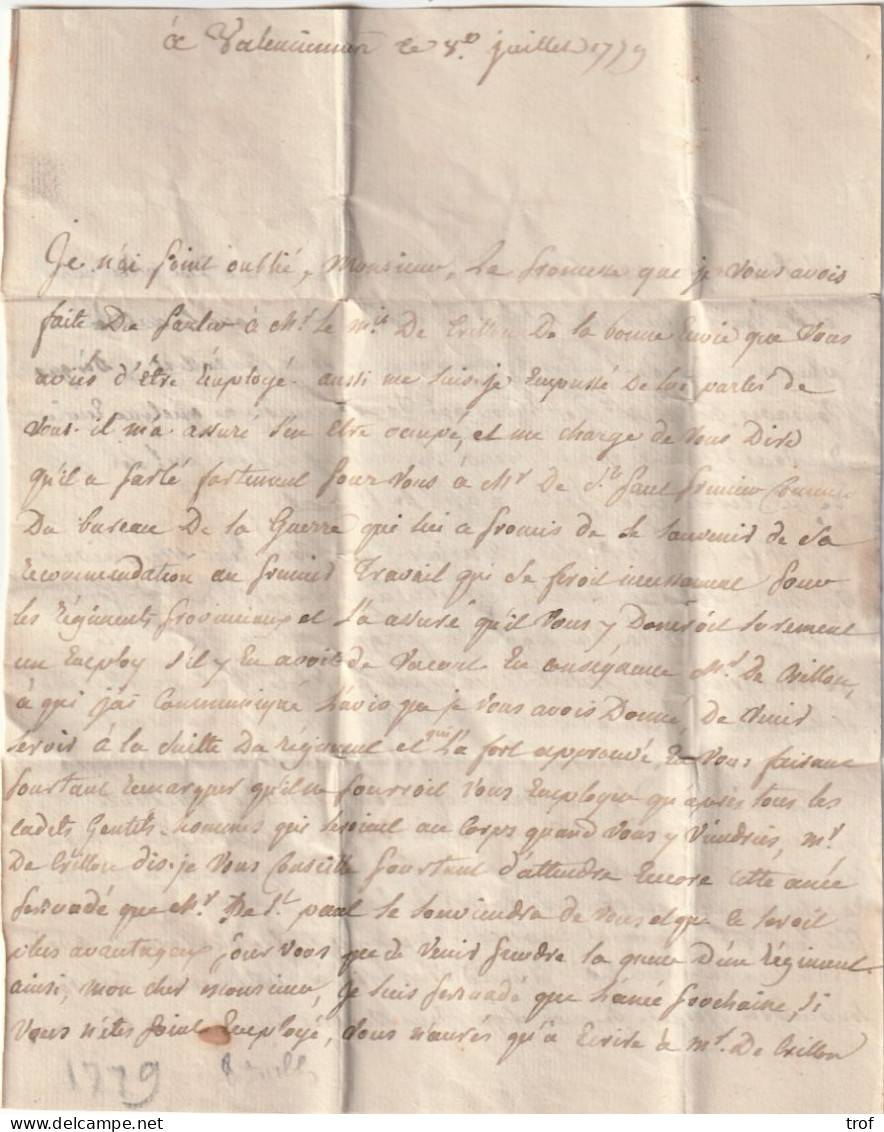 à Valenciennes ce 8.e juillet 1779
Je n'ai point oublié, Monsieur, La promesse que je Vous avois
faite De parler à Mr. Le m.is De Crillon De la bonne Envie que Vous
aviés d'être Employé. aussi me suis-je Empressé De lui parler de
Vous. il m'a assuré s'en être ocupé, et me charge de Vous Dire
qu'il a parlé fortement pour Vous à Mr De St. Paul premier Commis
Du bureau De la Guerre qui lui a promis de se souvenir de sa
recommendation au premier Travail qui se feroit incessament pour
les Régiments provinciaux et L'a assuré qu'il Vous y Doneroit surement
un Employ s'il y En avoit de Vacant. En conséquence Mr. De Crillon,
à qui j'ai Communiqué L'avis que je Vous avois Donné, De Venir
servir à la suitte Du Régiment et qui L'a fort approuvé, En Vous faisant
pourtant remarquer qu'il ne pourroit Vous Employer qu'après tous les
cadets Gentils-hommes qui seroient au Corps quand Vous y Viendriés, mr.
De Crillon dis-je Vous Conseille pourtant d'attendre Encore cette anée
persuadé que Mr. De St. paul se souviendra de Vous et que ce seroit
plus avantageux pour Vous que de Venir prendre la queue D'un Régiment
ainsi, mon cher monsieur, je suis persuadé que L'anée prochaine, si
Vous n'êtes point Employé, Vous n'aurés qu'à Ecrire à mr. De Crillon
1779
trof